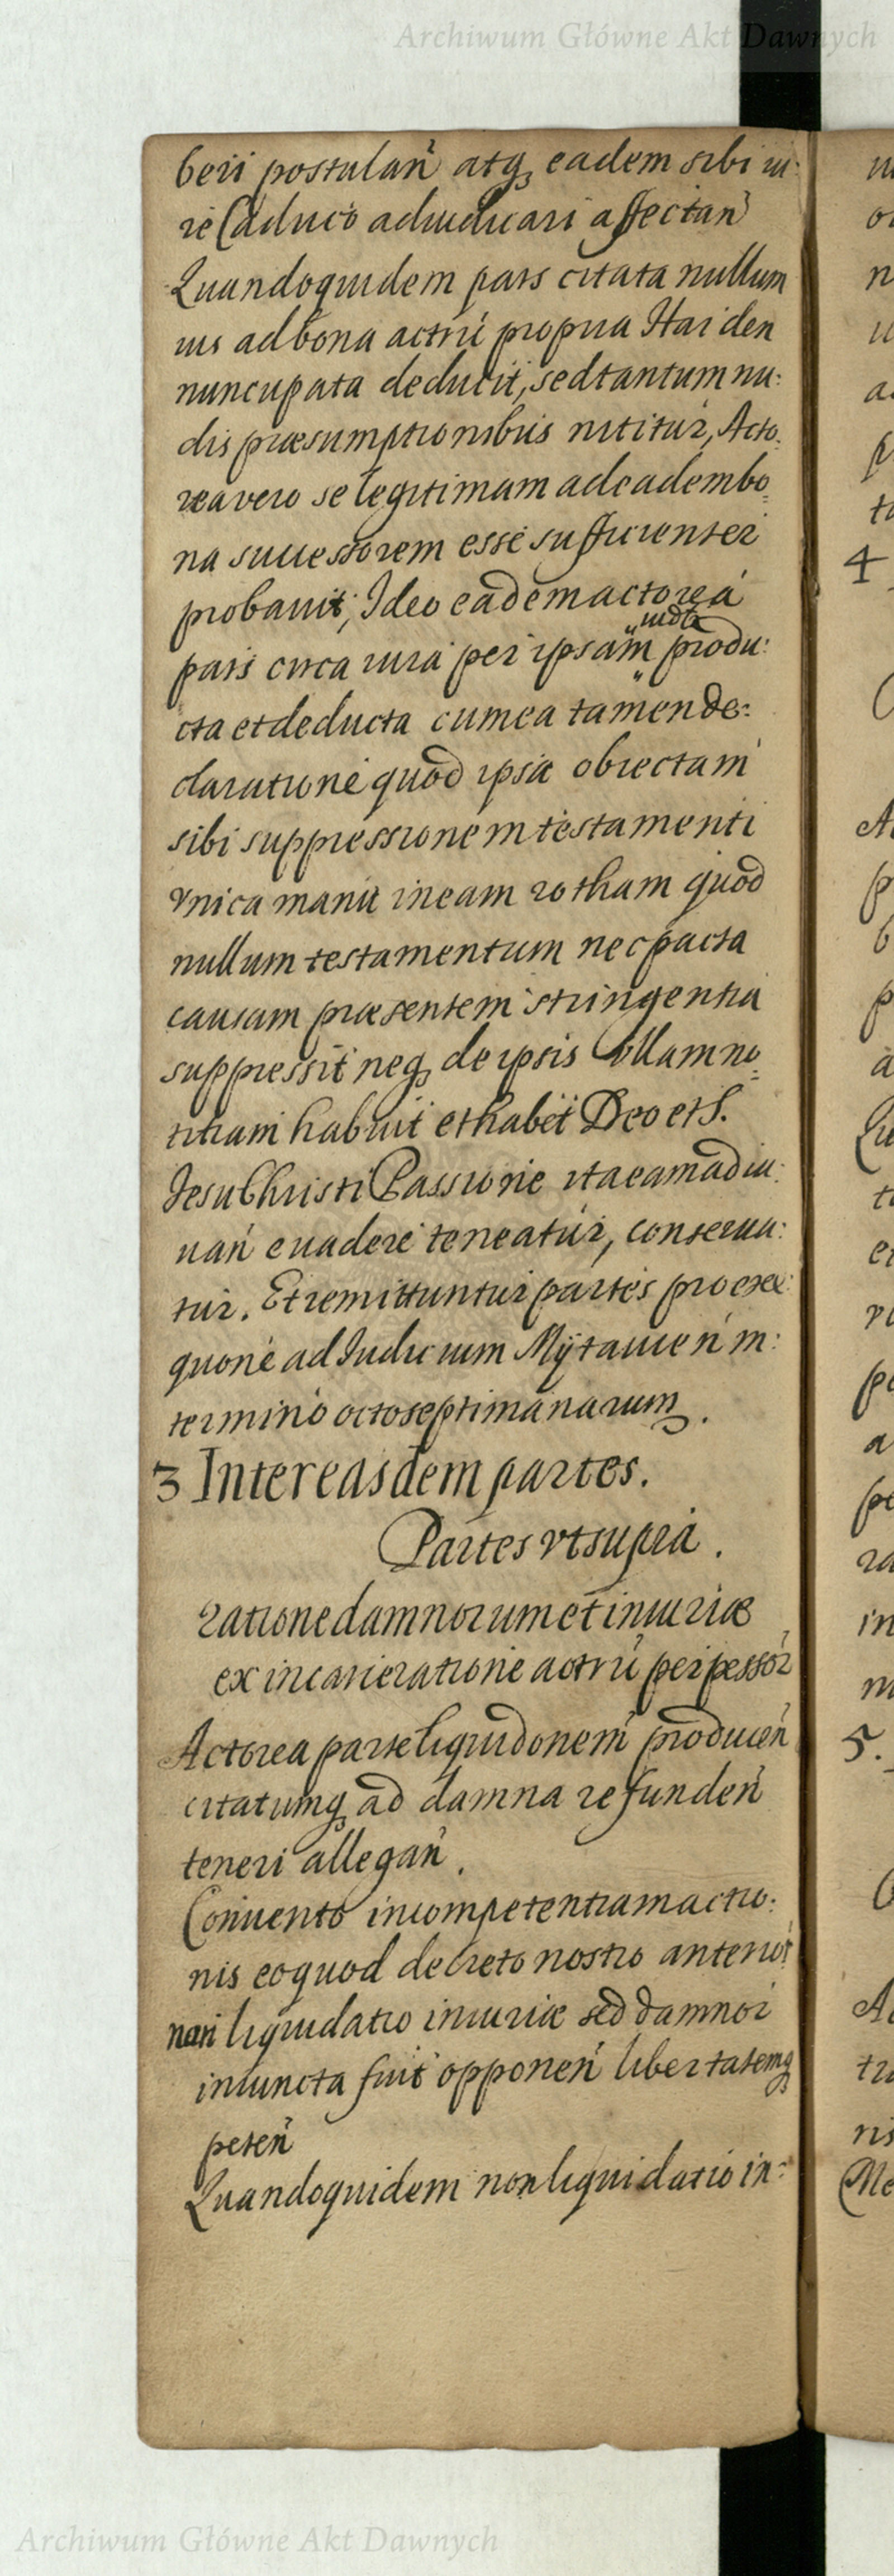 Archiwum Główne Akt Dawnych
beri postulań atq, eadem sibi iu:
re Caduco adiudicari affectań
Quandoquidem pars citata nullum
ius ad bona actrii propria Haiden
nuncupata deducit, sed tantum nu:
dis præsumptionibus nititur, Acto:
rea vero se legitimam ad eadem bo=
na successorem esse sufficienter
probauit, Ideo eadem actorea
pars circa iura per ipsam produ:
cta et deducta cum ea tamen de:
claratione quod ipsa obiectam
sibi suppressionem testamenti
vnica manu in eam rotham quod
nullum testamentum nec pacta
causam præsentem stringentia
suppressit neq, de ipsis vllam no=
titiam habuit et habet Deo et S.
Jesu Christi Passione ita eam adiu:
uań euadere teneatur, conserua:
tur. Et remittuntur partes pro exe:
quone ad Iudicium Mÿtauień in:
termino octo septimanarum.
3 Inter easdem partes.
Partes vt supra.
ratione damnorum et iniuriæ
ex incarieratione actrii perpessor
Actorea parte liquidonem produceń
citatumq, ad damna refundeń
teneri allegań.
Conuento incompetentiam actio:
nis eo quod decreto nostro anterior
non liquidatio iniuriæ sed damnor
iniuncta fuit opponeń libertatemq,
peteń
Quandoquidem non liquidatio in:
Archiwum Główne Akt Dawnych